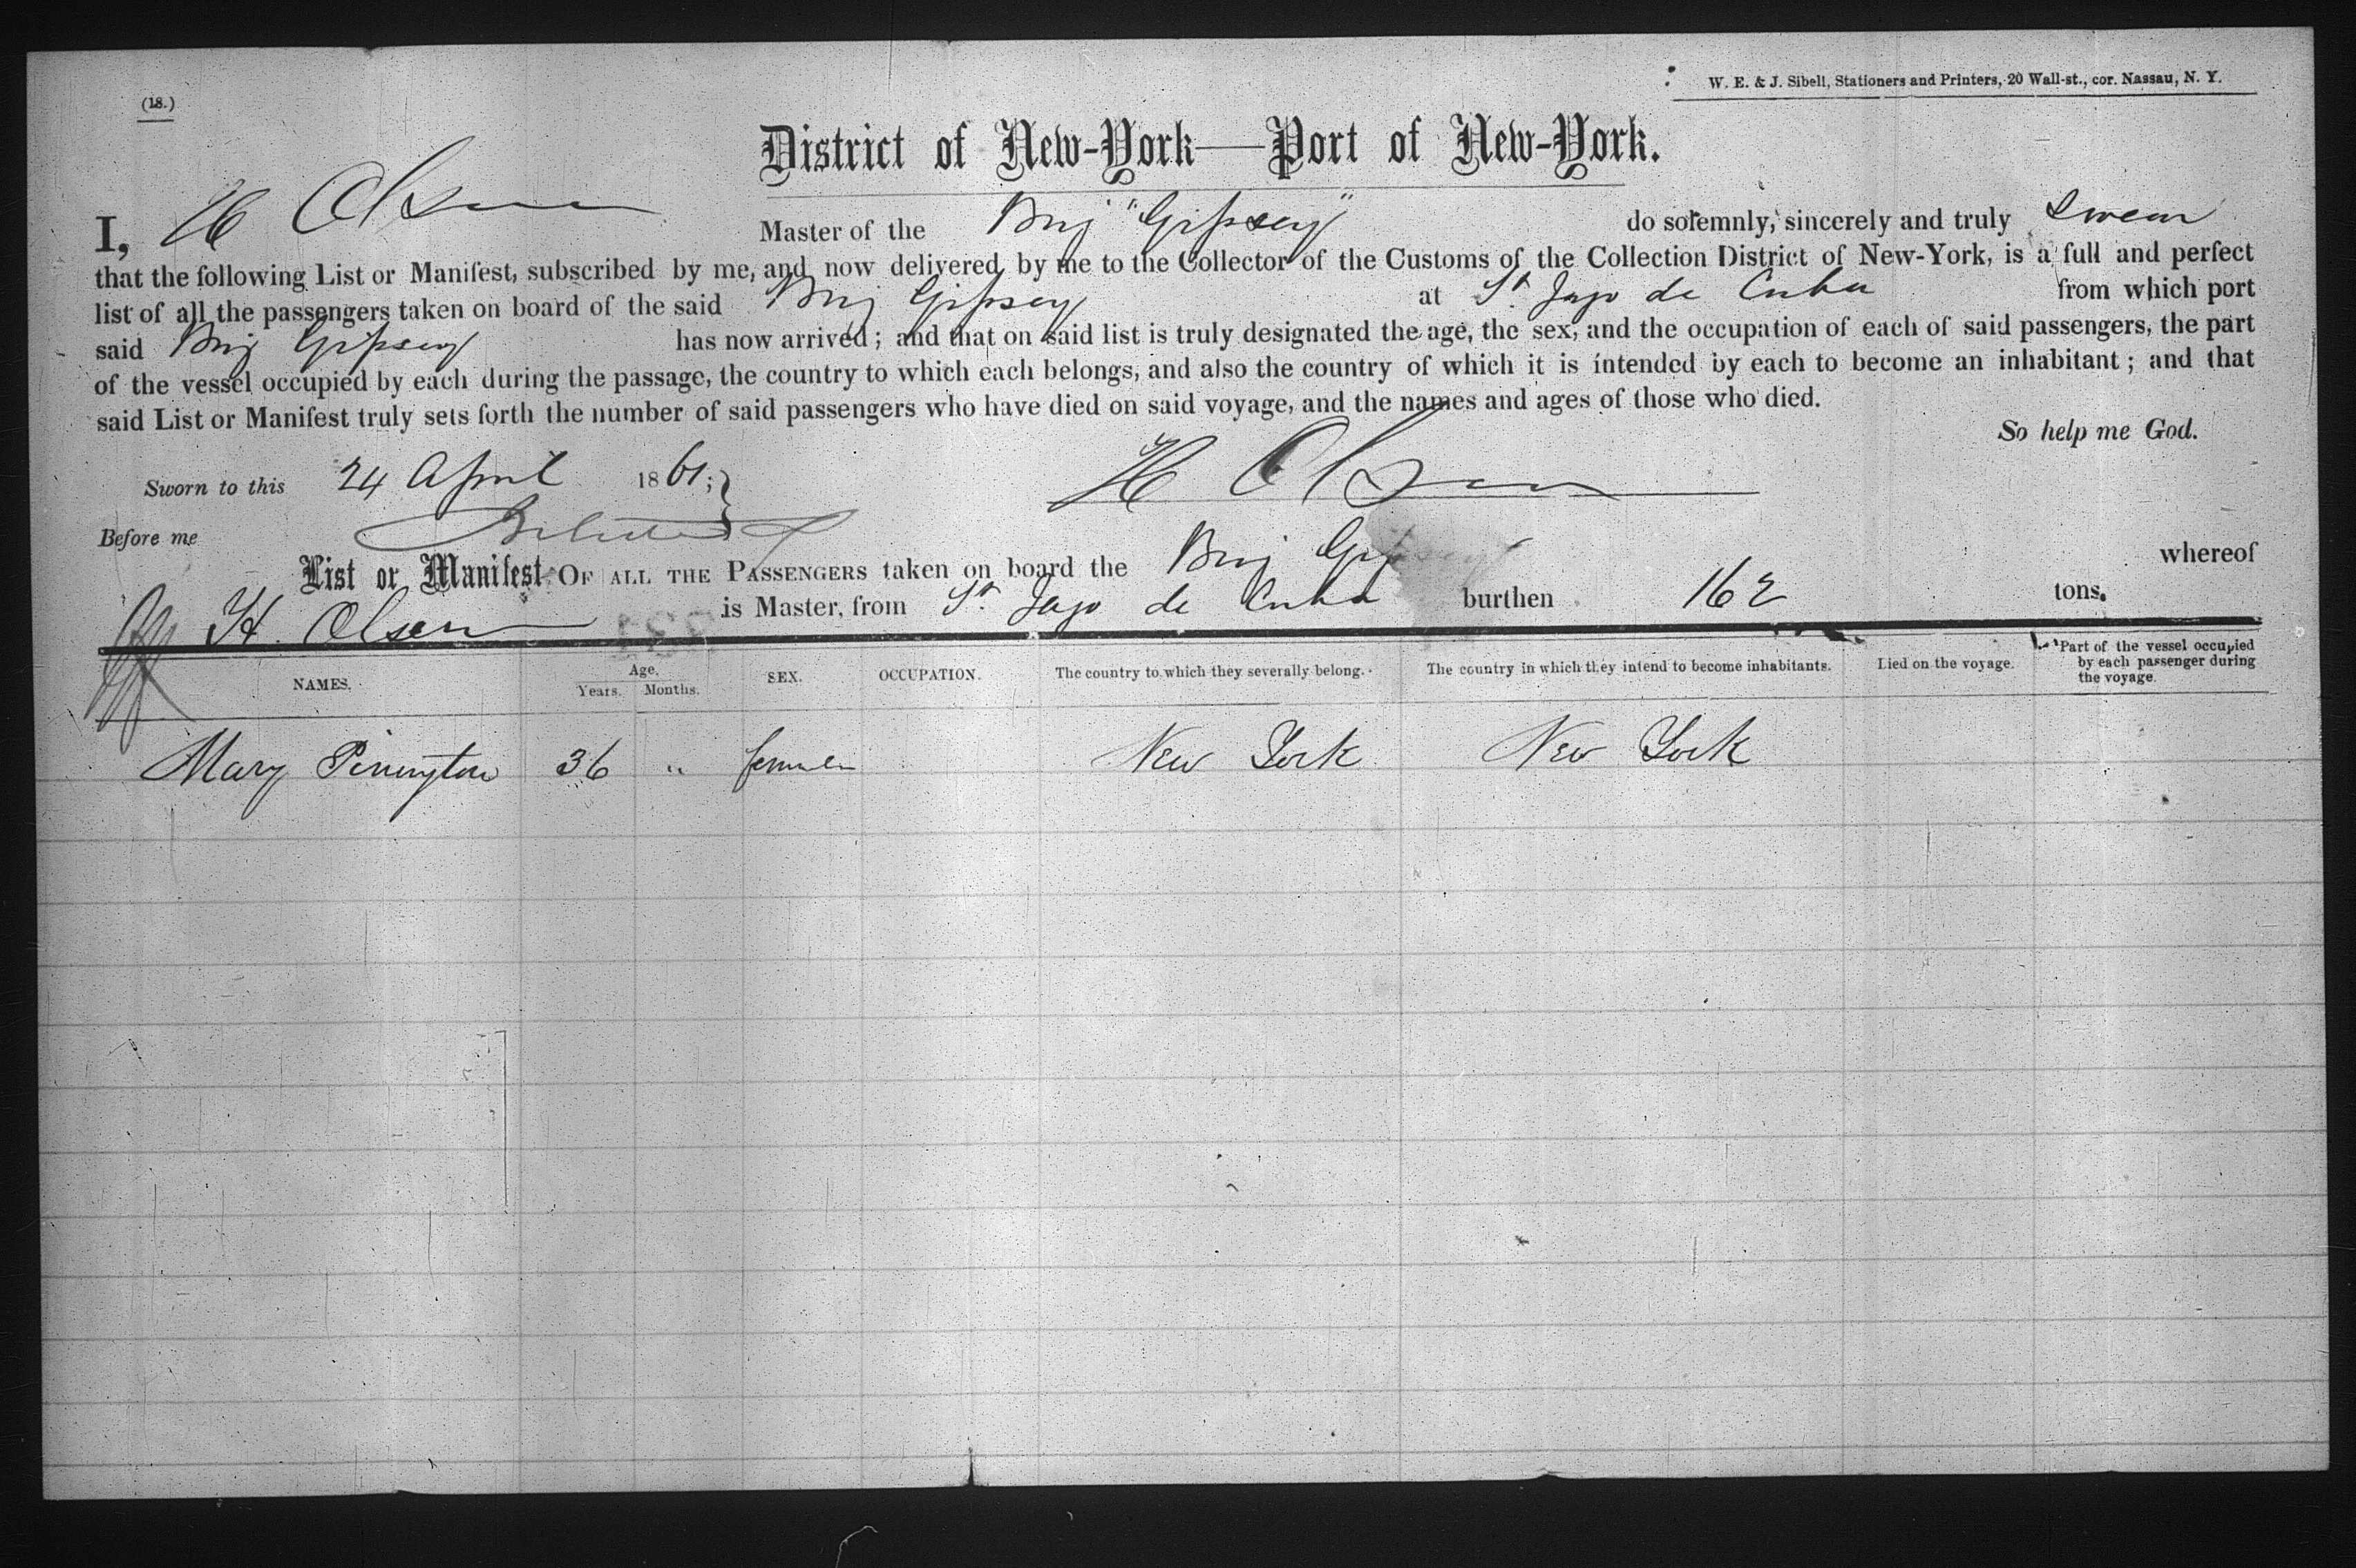 (18.)
W. E. & J. Sibell, Stationers and Printers, 20 Wall-st., cor. Nassau, N. Y.
District of New-York—Port of New-York.
I, H Olsen Master of the Brig "Gipsey" do solemnly, sincerely and truly swear
that the following List or Manifest, subscribed by me, and now delivered by me to the Collector of the Customs of the Collection District of New-York, is a full and perfect
list of all the passengers taken on board of the said Brig Gipsey at St. Jago de Cuba from which port
said Brig Gipsey has now arrived; and that on said list is truly designated the age, the sex, and the occupation of each of said passengers, the part
of the vessel occupied by each during the passage, the country to which each belongs, and also the country of which it is intended by each to become an inhabitant; and that
said List or Manifest truly sets forth the number of said passengers who have died on said voyage, and the names and ages of those who died.
So help me God.
Sworn to this 24 April 1861;
H Olsen
Before me
List or Manifest OF ALL THE PASSENGERS taken on board the Brig Gipsey whereof
H. Olsen is Master, from St. Jago de Cuba burthen 162 tons.
NAMES. Age. Years. Months. SEX. OCCUPATION. The country to which they severally belong. The country in which they intend to become inhabitants. Died on the voyage. Part of the vessel occupied by each passenger during the voyage.
Mary Penington 36 " female New York New York